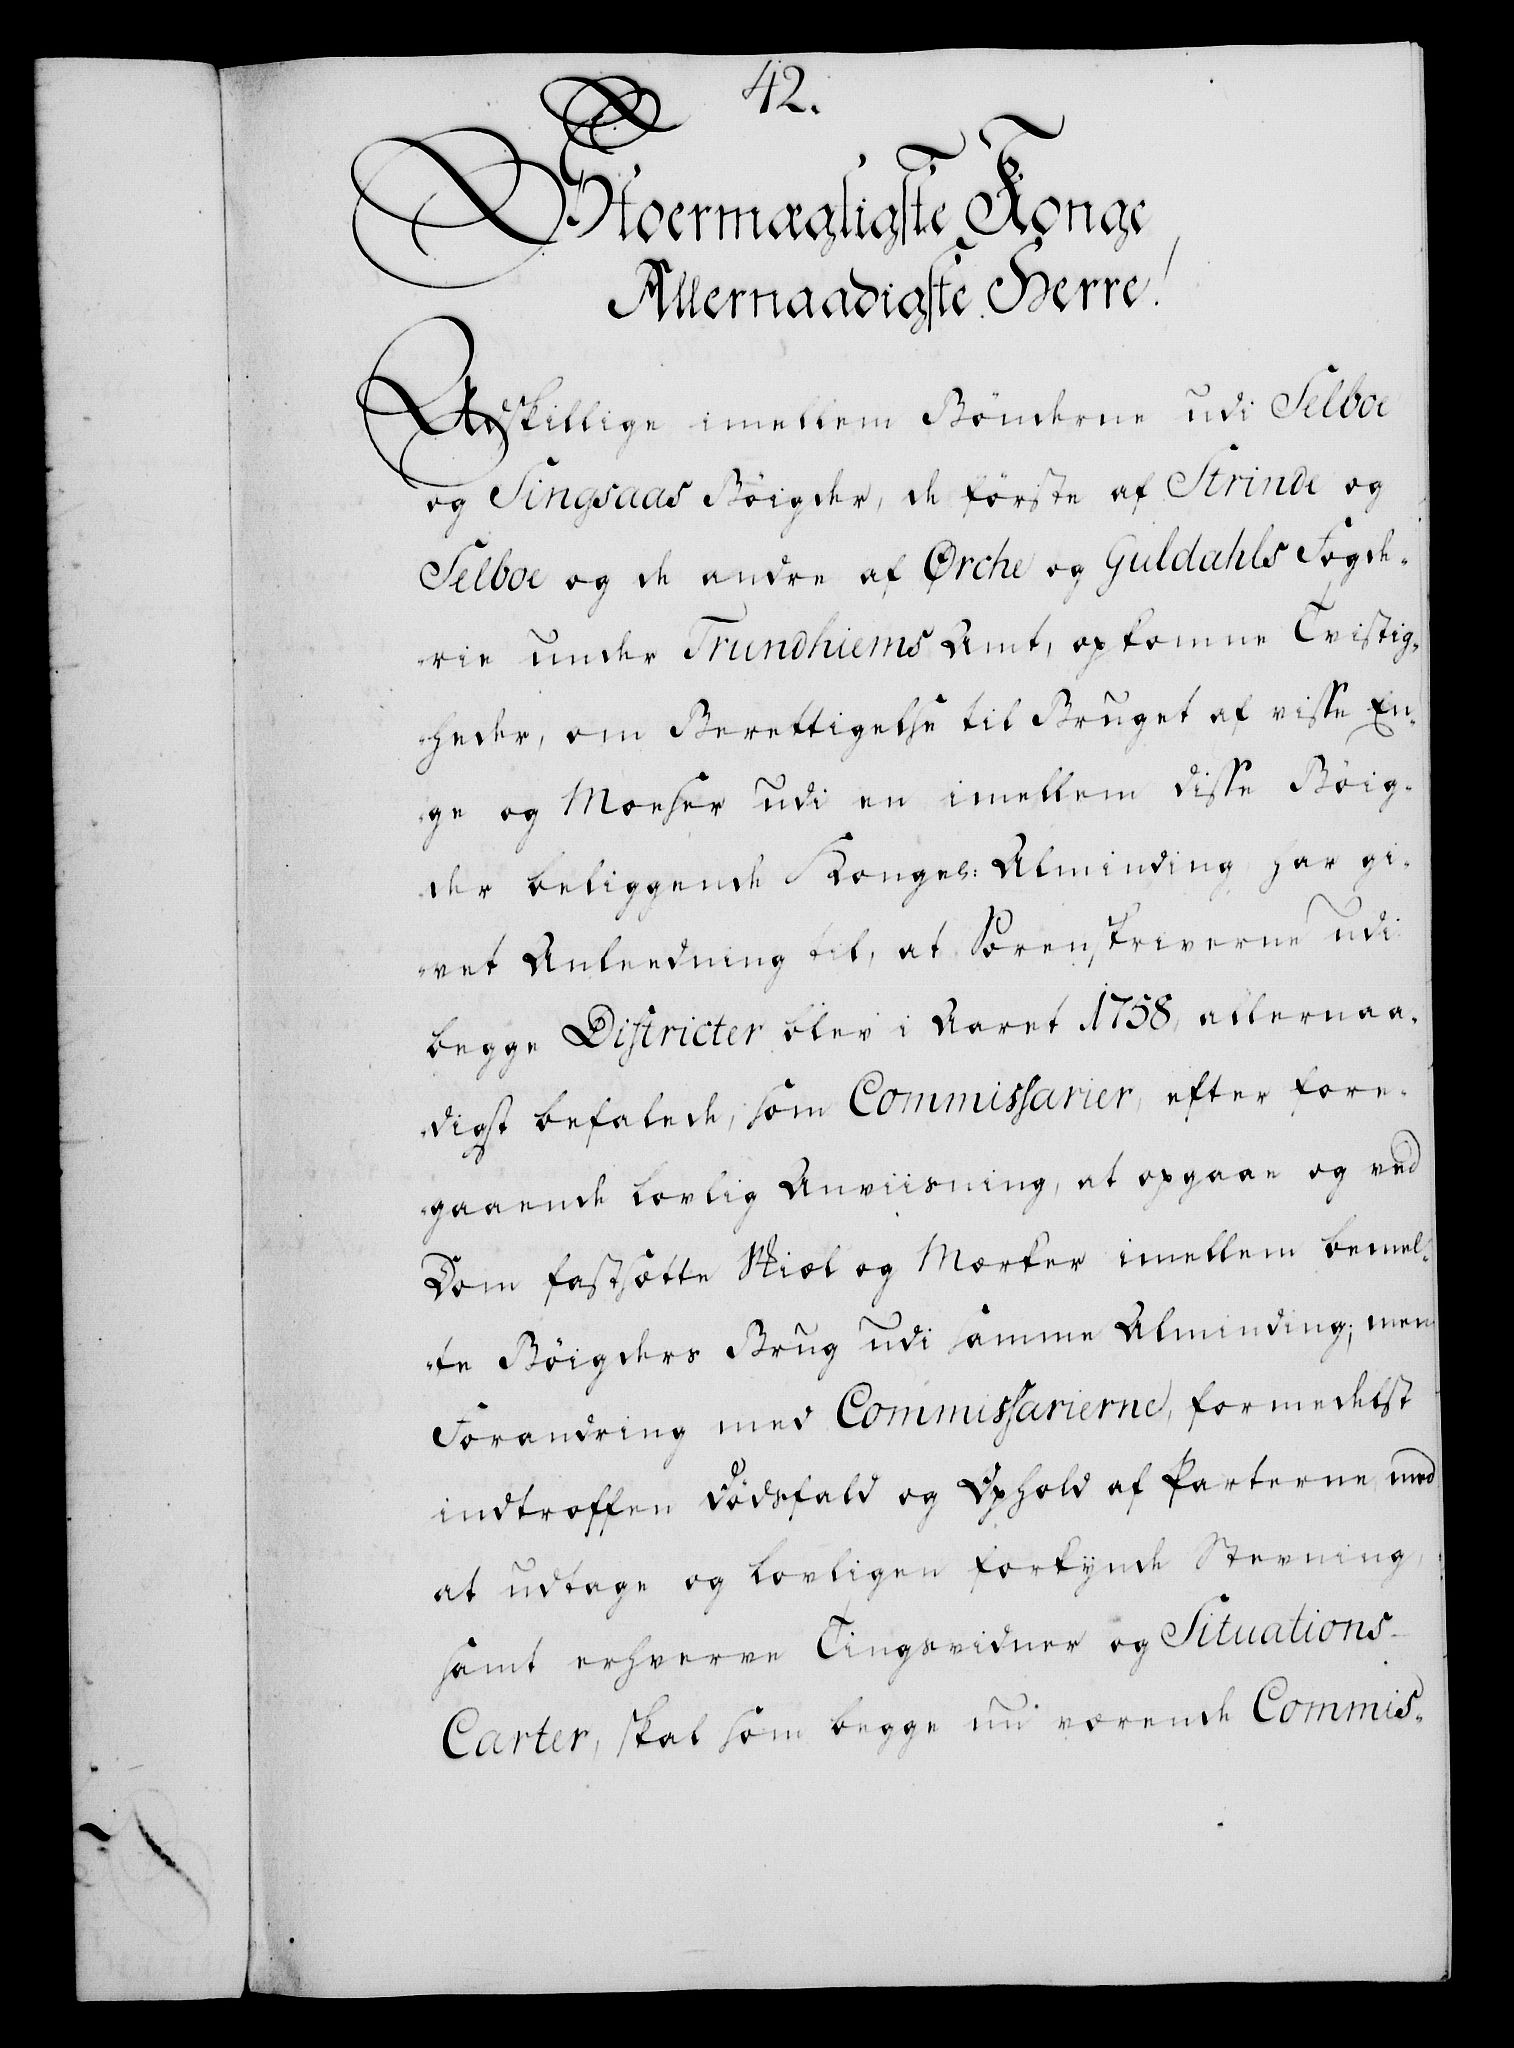 42.
Stoermægtigste Konge
Allernaadigste Herre!
Adskillige imellem Bönderne udi Selboe
og Singsaas Böigder, de förste af Strinde og
Selboe og de andre af Ørche og Guldahls Fogde-
rie under Trundhiems Amt, opkomne Tvistig-
heder, om Berettigelse til Bruget af visse En-
ge og Moeser udi en imellem disse Böig-
der beliggende Kongel: Alminding har gi-
vet Anleedning til, at Sorenskriverne udi
begge Districter blev i Aaret 1758, allernaa-
digst befalede, som Commissarier, efter fore-
gaaende lovlig Anviisning, at opgaae og ved
Dom fastsætte Skiel og Mærker imellem bemel-
te Böigders Brug udi samme Alminding; men
Forandring med Commissarierne, formedelst
indtroffen Dödsfald og Ophold af Parterne med
at udtage og lovligen forkynde Stevning,
samt erhverve Tingsvidner og Situations-
Carter, skal som begge nu værende Commis-